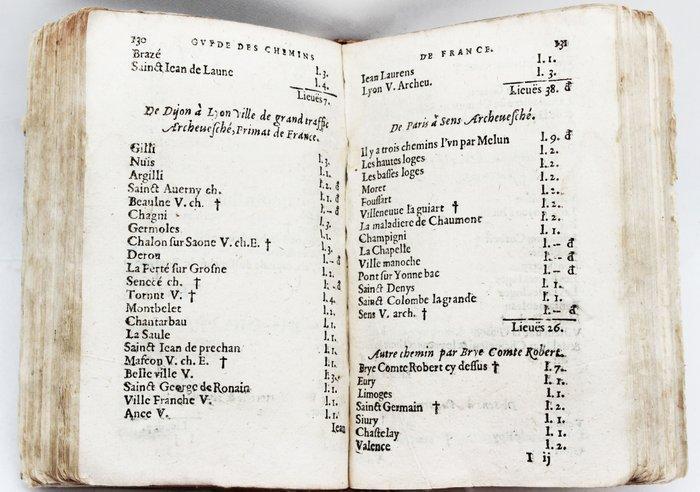 130 GVYDE DES CHEMINS
Brazé l. 3.
Sainct Iean de Laune l. 4.
Lieuës 7.
De Dijon à Lyon Ville de grand traffic
Archeuesché, Primat de France.
Gilli l. 3.
Nuis l. 1.
Argilli l. 2. đ
Sainct Auerny ch. l. 1. đ
Beaulne V. ch. † l. - đ
Chagni l. 3.
Germoles l. 1.
Chalon sur Saone V. ch. E. † l. 3.
Derou l. - đ
La Ferté sur Grosne l. 1.
Senecé ch. † l. - đ
Tornut V. † l. 4.
Montbelet l. 2.
Chantarbau l. 1.
La Saule l. 1.
Sainct Iean de prechan l. 1.
Mascon V. ch. E. † l. 1.
Belle ville V. l. 3.
Sainct George de Ronain l. 1.
Ville Franche V. l. 1.
Ance V. l. 1.
Iean
DE FRANCE. 131
Iean Laurens l. 1.
Lyon V. Archeu. l. 3.
Lieuës 38. đ
De Paris à Sens Archeuesché.
Il y a trois chemins l'vn par Melun l. 9. đ
Les hautes loges l. 2.
Les basses loges l. 2.
Moret l. 2.
Foussart l. 2.
Villeneuue la guiart † l. 2.
La maladiere de Chaumont l. 2.
Champigni l. 1.
La Chapelle l. - đ
Ville manoche l. - đ
Pont sur Yonne bac l. - đ
Sainct Denys l. 1.
Sainct Colombe la grande l. 1.
Sens V. arch. † l. - đ
Lieuës 26.
Autre chemin par Brye Comte Robert.
Brye Comte Robert cy dessus † l. 7.
Eury l. 1.
Limoges l. 1.
Sainct Germain † l. 2.
Siury l. 1.
Chastelay l. 1.
Valence l. 2.
I ij